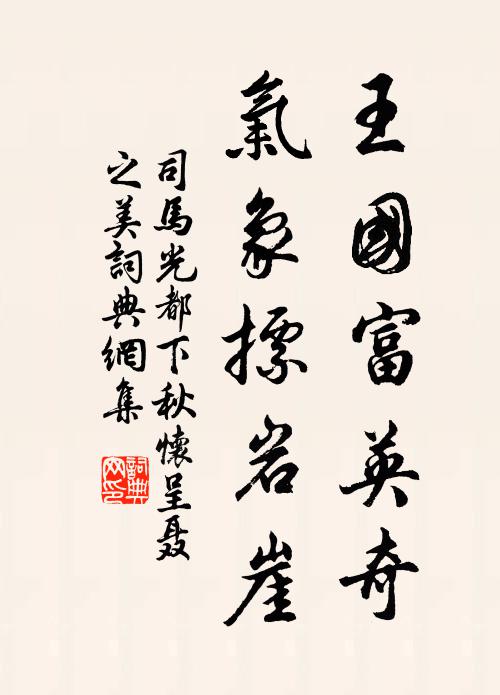 王國富英奇
氣象摽岩崖
司馬光都下秋懷呈聶
之美詞典網集
詞典
网印